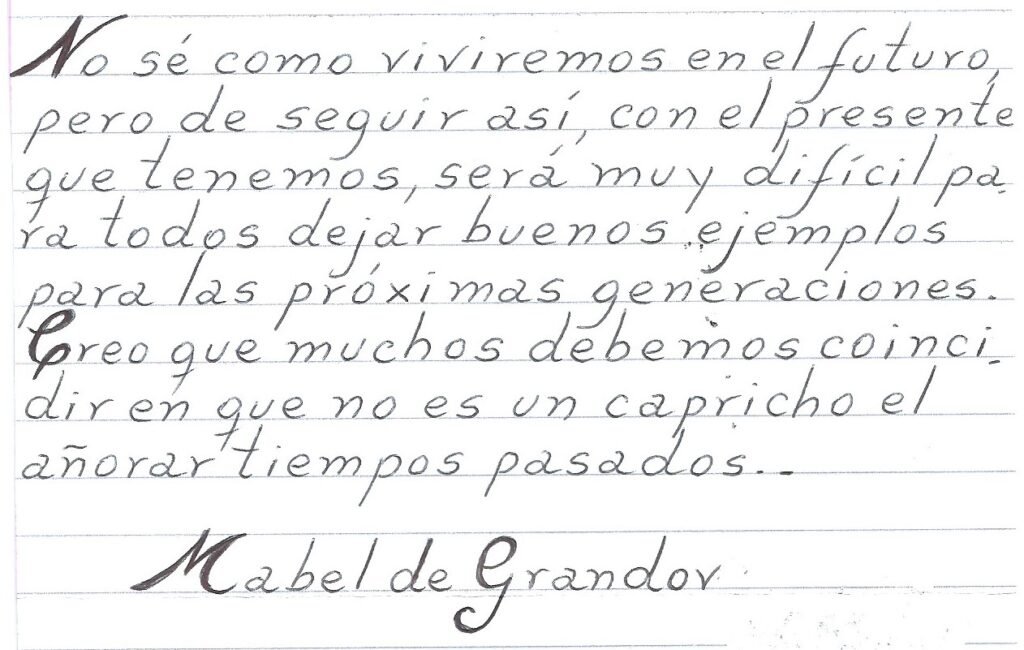 No sé como viviremos en el futuro,
pero de seguir así, con el presente
que tenemos, será muy difícil pa-
ra todos dejar buenos ejemplos
para las próximas generaciones.
Creo que muchos debemos coinci-
dir en que no es un capricho el
añorar tiempos pasados..-
Mabel de Grandov